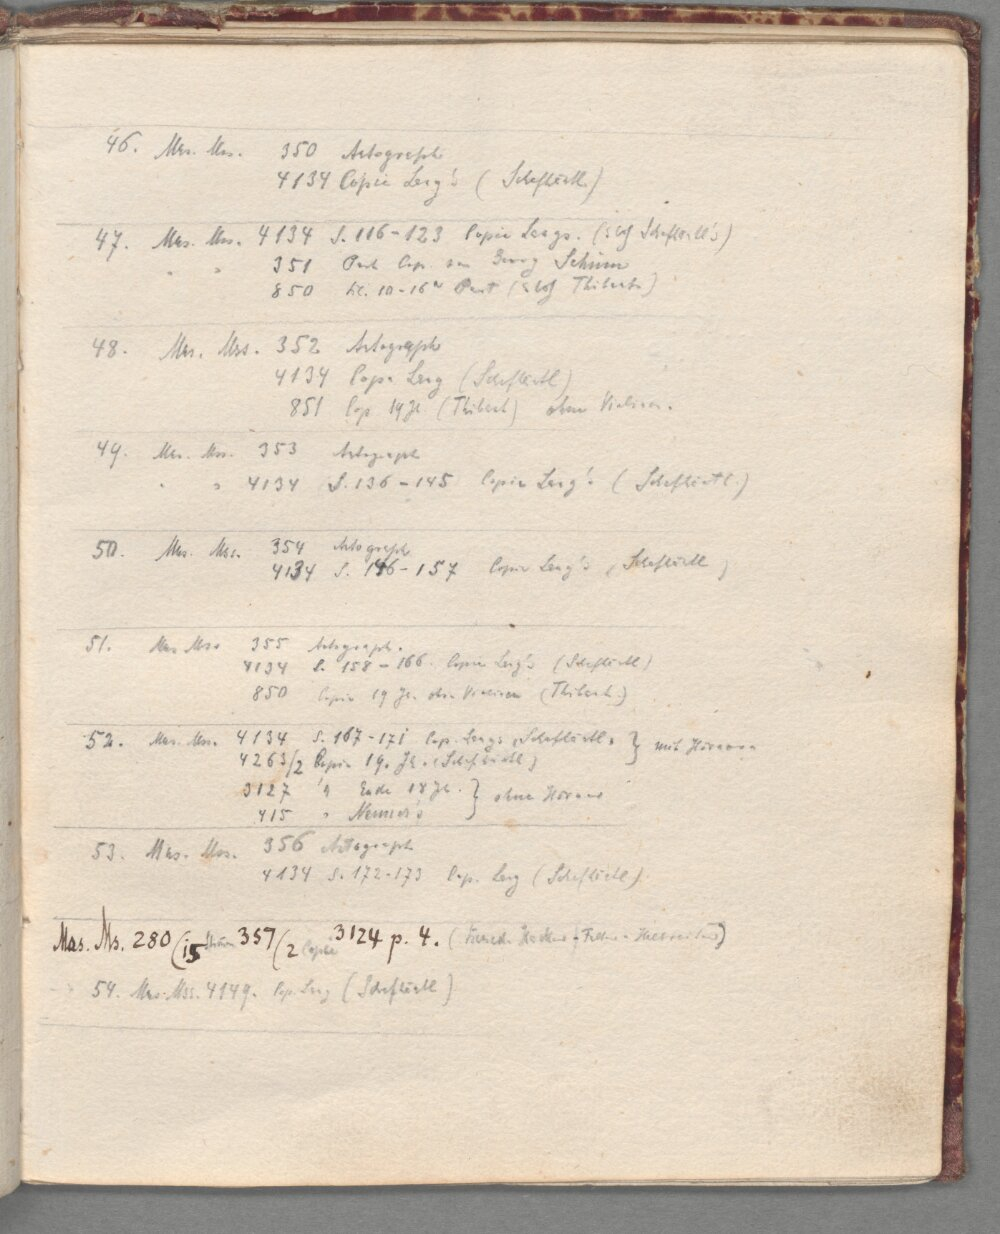 46. Mus. Mss. 350 Autograph
4134 Copie Lang's (Schafhäutl)
47. Mus. Mss. 4134 S. 116-123 Copie Langs. (Schafhäutl's)
" " 351 Part Cop. von Georg Schinn
850 10-16 Part (Thibaut)
48. Mus. Mss. 352 Autograph
4134 Copie Lang (Schafhäutl)
851 Cop 19 Jh. (Thibaut) ohne Violinen.
49. Mus. Mss. 353 Autograph
" " 4134 S. 136-145 Copie Lang's (Schafhäutl.)
50. Mus. Mss. 354 Autograph
4134 S. 146-157 Copie Lang's (Schafhäutl)
51. Mus Mss 355 Autograph.
4134 S. 158-166. Copie Lang's (Schafhäutl)
850 Copie 19 Jh. ohne Violinen (Thibaut.)
52. Mus. Mss. 4134 S. 167-171 Cop. Langs (Schafhäutl) } mit Hörnern
4263/2 Copie 19. Jh. (Schafhäutl)
3127 " Ende 18 Jh. } ohne Hörner
415 " Neuner's
53. Mus. Mss. 356 Autograph
4134 S. 172-173 Cop. Lang (Schafhäutl)
Mus. Ms. 280 (15 357 (2 Copie 3124 p. 4.
54. Mus. Mss. 4149. Cop. Lang (Schafhäutl)